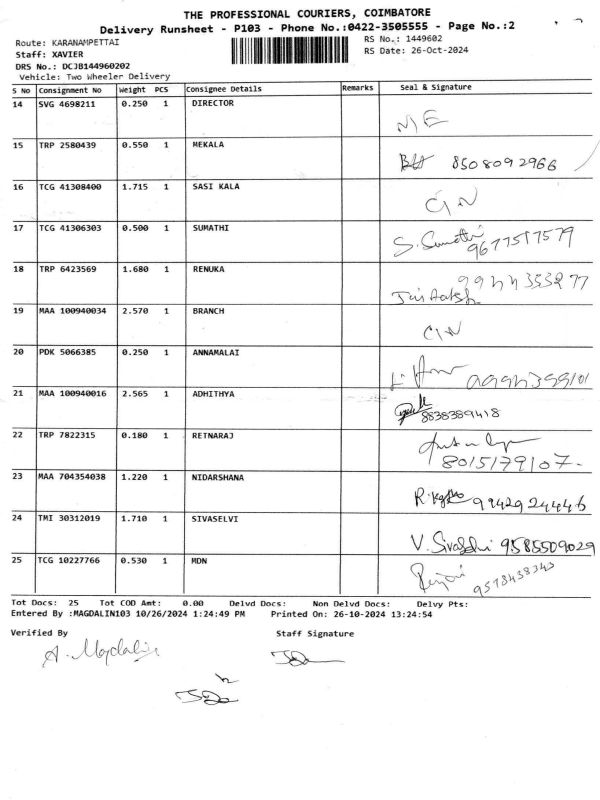 THE PROFESSIONAL COURIERS, COIMBATORE
Delivery Runsheet - P103 - Phone No.:0422-3505555 - Page No.:2
Route: KARANAMPETTAI
RS No.: 1449602
Staff: XAVIER
RS Date: 26-Oct-2024
DRS No.: DCJB144960202
Vehicle: Two Wheeler Delivery
S No Consignment No Weight PCS Consignee Details Remarks Seal & Signature
14 SVG 4698211 0.250 1 DIRECTOR
15 TRP 2580439 0.550 1 MEKALA 8508092966
16 TCG 41308400 1.715 1 SASI KALA
17 TCG 41306303 0.500 1 SUMATHI S. Sumathi 9677517579
18 TRP 6423569 1.680 1 RENUKA
19 MAA 100940034 2.570 1 BRANCH
20 PDK 5066385 0.250 1 ANNAMALAI
21 MAA 100940016 2.565 1 ADHITHYA 8838389418
22 TRP 7822315 0.180 1 RETNARAJ 8015179107.
23 MAA 704354038 1.220 1 NIDARSHANA 9942924446
24 TMI 30312019 1.710 1 SIVASELVI V. Sivaselvi 9585509029
25 TCG 10227766 0.530 1 MDN 9578438343
Tot Docs: 25 Tot COD Amt: 0.00 Delvd Docs: Non Delvd Docs: Delvy Pts:
Entered By :MAGDALIN103 10/26/2024 1:24:49 PM Printed On: 26-10-2024 13:24:54
Verified By Staff Signature
A. Magdalin